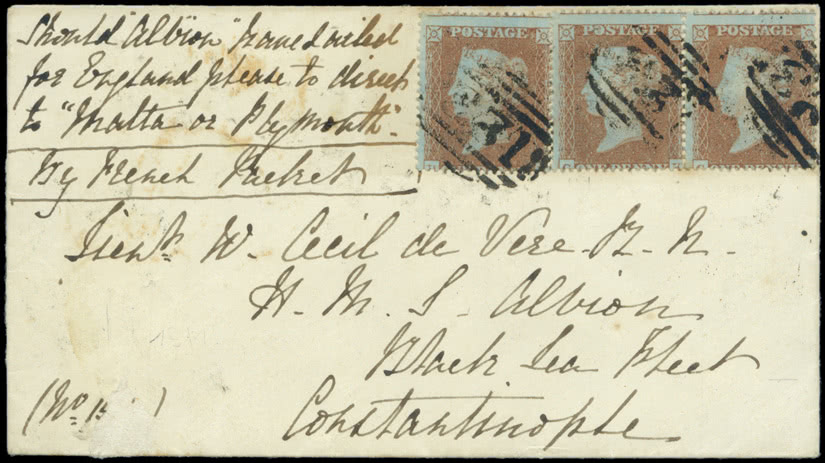 Should "Albion" have sailed
for England please to direct
to "Malta or Plymouth".
By French Packet
POSTAGE POSTAGE POSTAGE
Lieut. W. Cecil de Vere. R. N.
H. M. S. Albion
Black Sea Fleet
Constantinople
(No